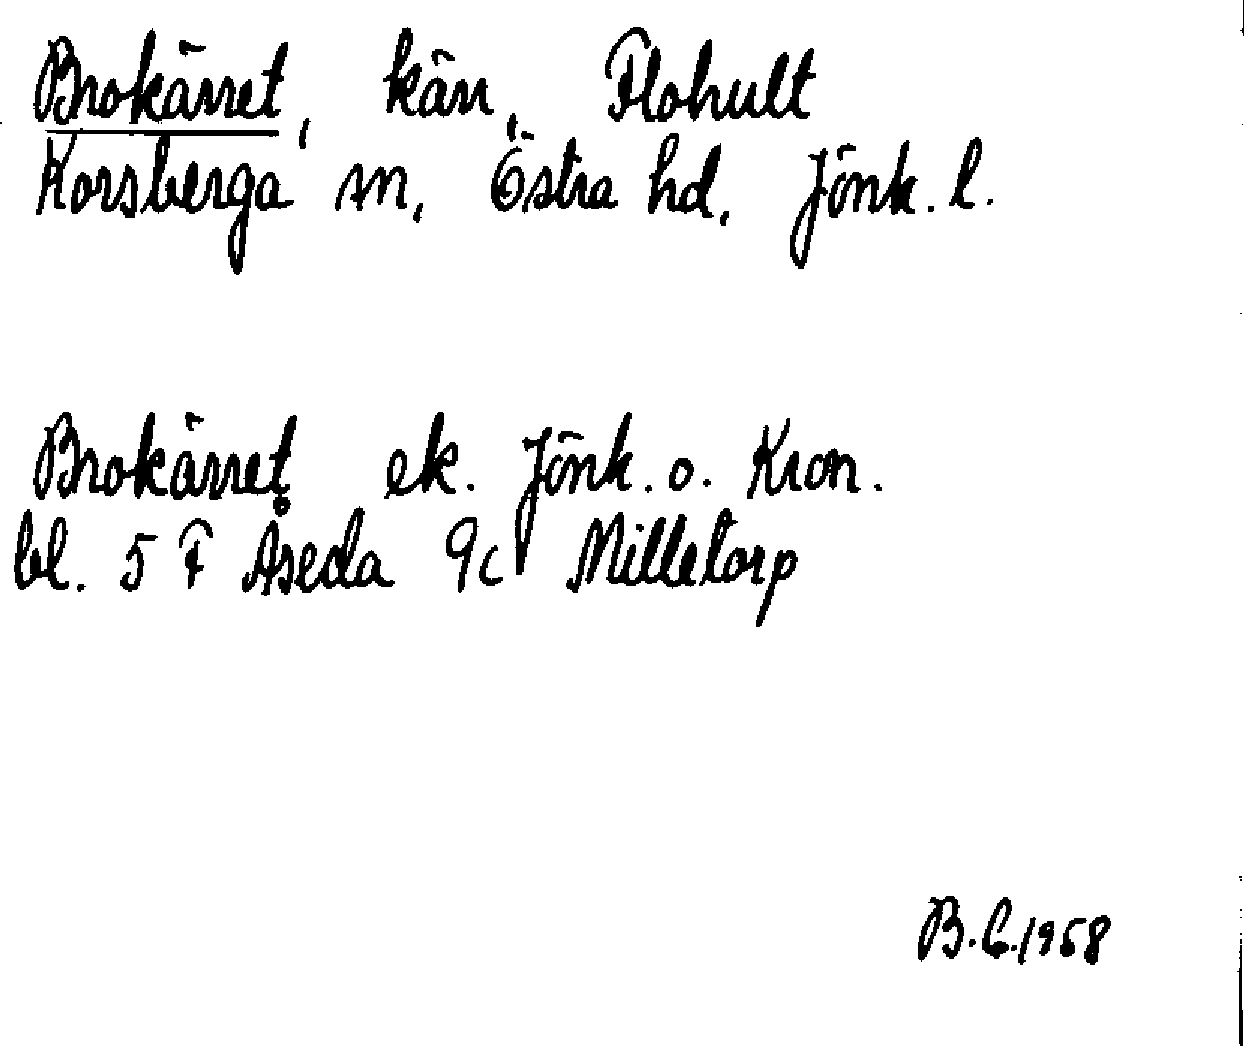 Brokärret, kärr, Flohult
Korsberga sn, Östra hd, Jönk. l.
Brokärret ek. Jönk. o. Kron.
bl. 5 F Åseda 9c Milletorp
B.C.1958